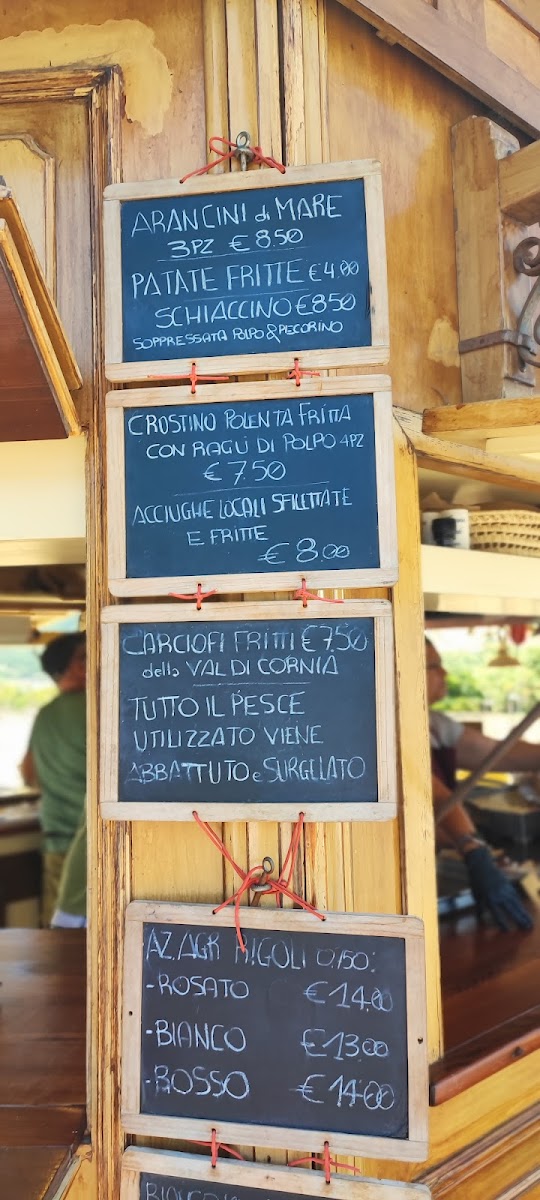 ARANCINI di MARE
3PZ € 8.50
PATATE FRITTE € 4.00
SCHIACCINO € 850
SOPPRESSATA POLPO & PECORINO
CROSTINO POLENTA FRITTA
CON RAGÙ DI POLPO 4PZ
€ 7.50
ACCIUGHE LOCALI SFILETTATE
E FRITTE
€ 8,00
CARCIOFI FRITTI € 7.50
della VAL DI CORNIA
TUTTO IL PESCE
UTILIZZATO VIENE
ABBATTUTO e SURGELATO
AZ.AGR RIGOLI 0,150:
-ROSATO € 14.00
-BIANCO € 13.00
-ROSSO € 14.00
BIANCO